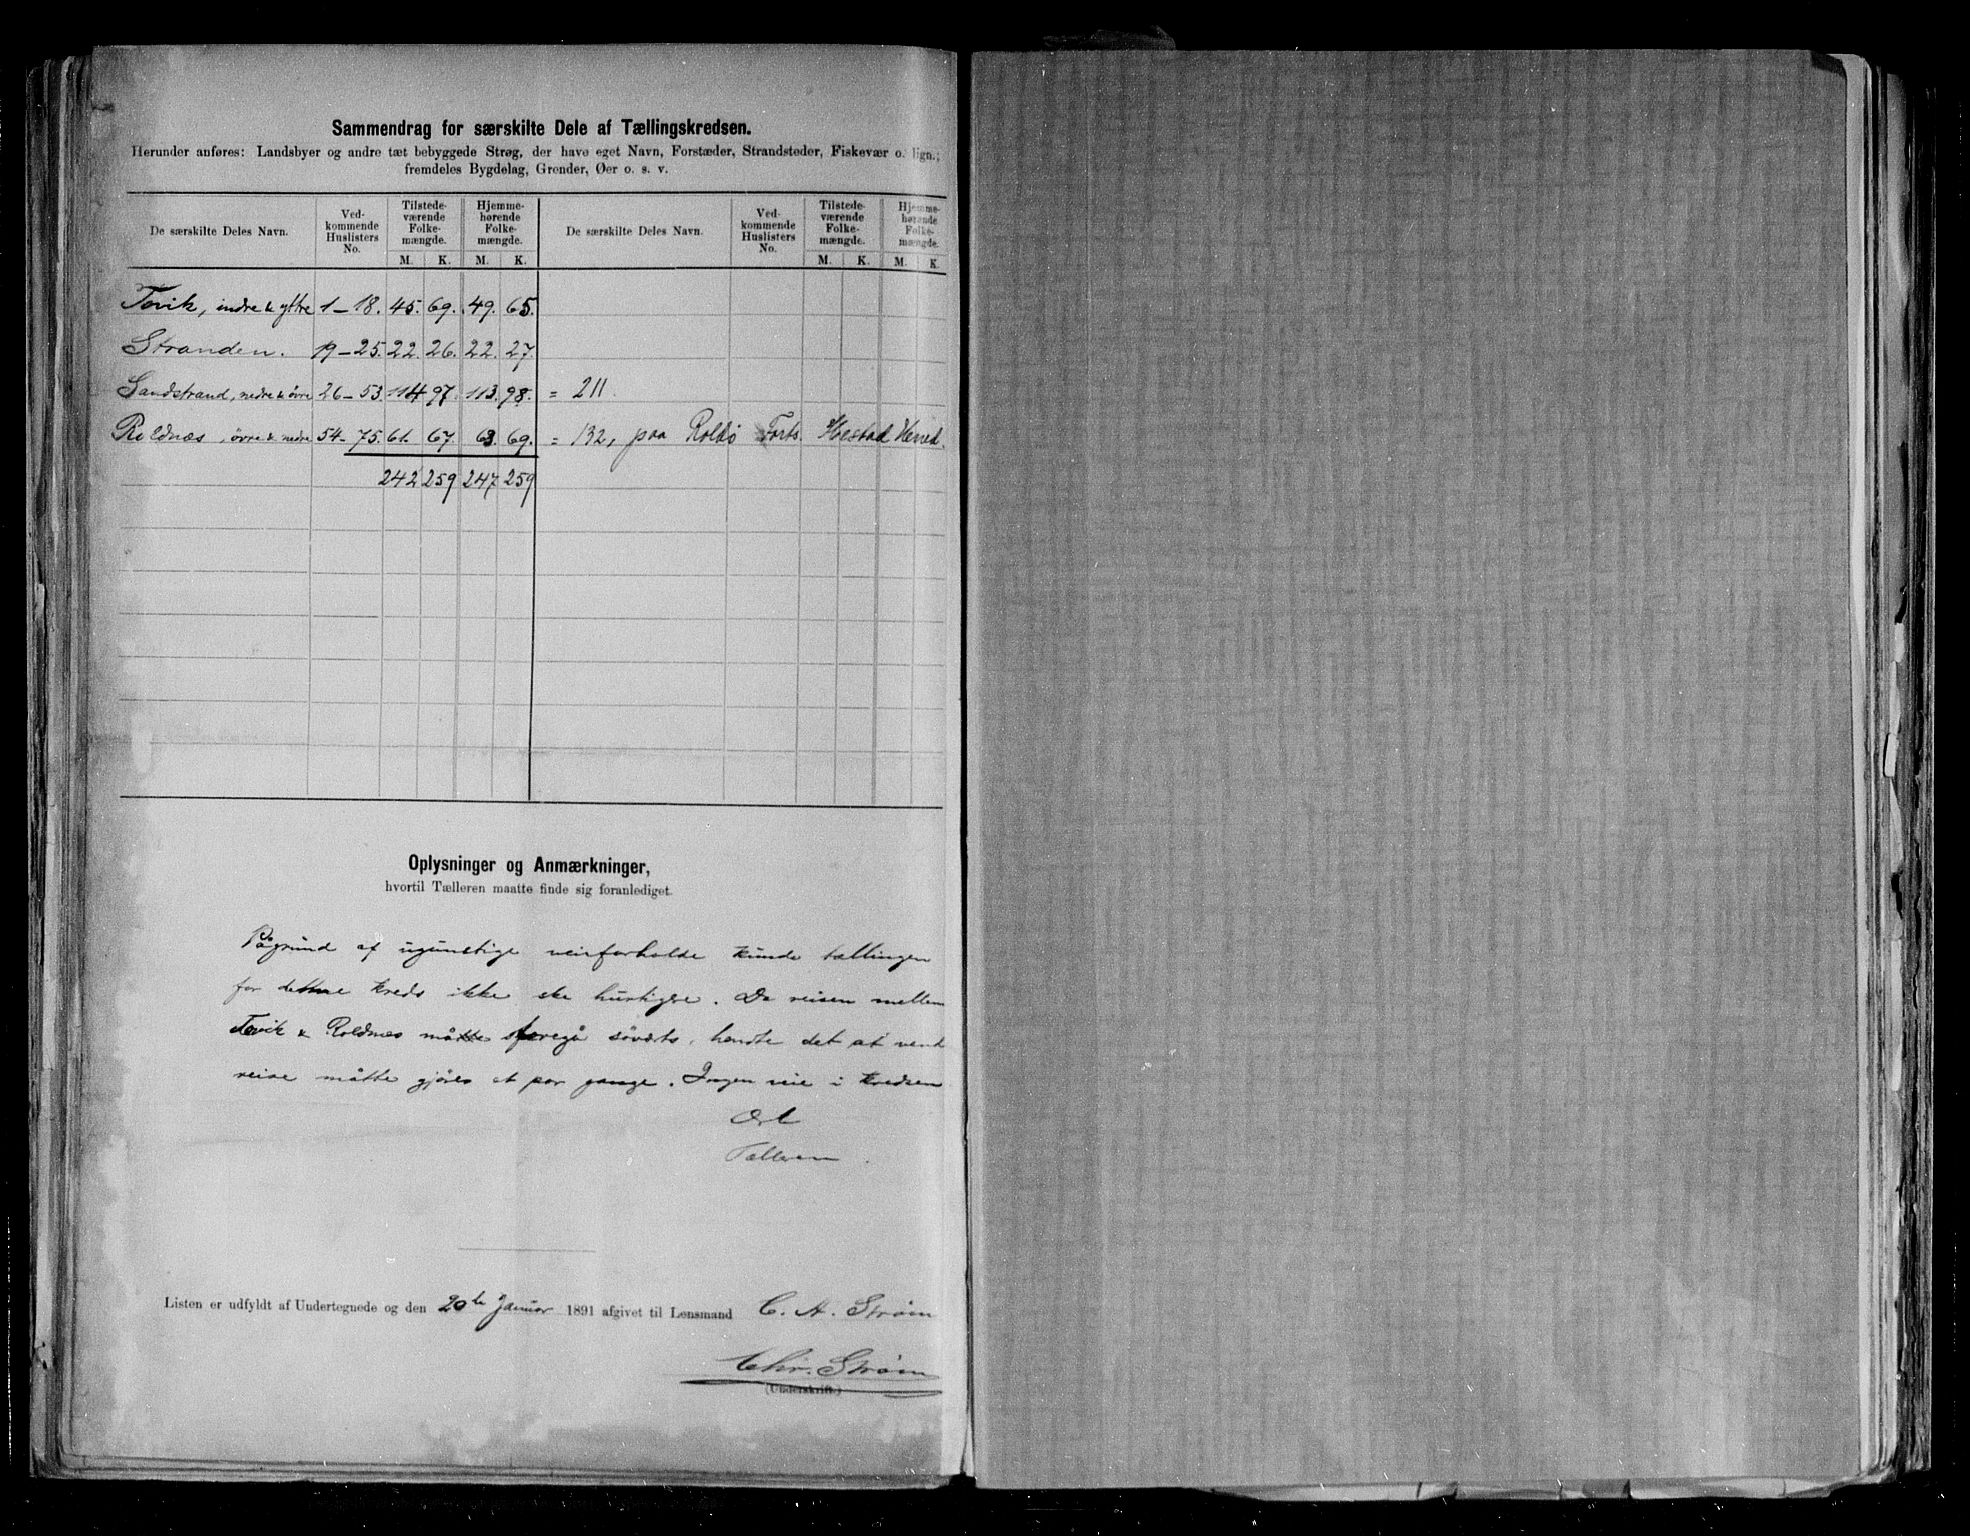 Sammendrag for særskilte Dele af Tællingskredsen.
Herunder anføres: Landsbyer og andre tæt bebyggede Strøg, der have eget Navn, Forstæder, Strandsteder, Fiskevær o. lign.;
fremdeles Bygdelag, Grender, Øer o. s. v.
De særskilte Deles Navn.
Ved-
kommende
Huslisters
No.
Tilstede-
værende
Folke-
mængde.
Hjemme-
hørende
Folke-
mængde.
M. K. M. K.
De særskilte Deles Navn.
Ved-
kommende
Huslisters
No.
Tilstede-
værende
Folke-
mængde.
Hjemme-
hørende
Folke-
mængde.
M. K. M. K.
Tovik, indre & yttre 1-18. 45. 69. 49. 65.
Stranden. 19-25. 22. 26. 22. 27.
Sandstrand, nedre & øvre 26-53. 114 97. 113. 98. = 211.
Roldnæs, øvre & nedre 54-75. 61. 67. 63. 69. = 132, paa Roldö Herred.
242 259 247 259
Oplysninger og Anmærkninger,
hvortil Tælleren maatte finde sig foranlediget.
Pågrund af ugunstige veirforholde kunde tællingen
for denne kreds ikke ske hurtigere. Da reisen mellem
Tovik & Roldnæs måtte foregå søværts, hændte det at vend
reise måtte gjöres et par gange. Ingen veie i kredsen
Tælleren
Listen er udfyldt af Undertegnede og den 20de Januar 1891 afgivet til Lensmand C. A. Strøm
Chr. Strøm
(Underskrift.)